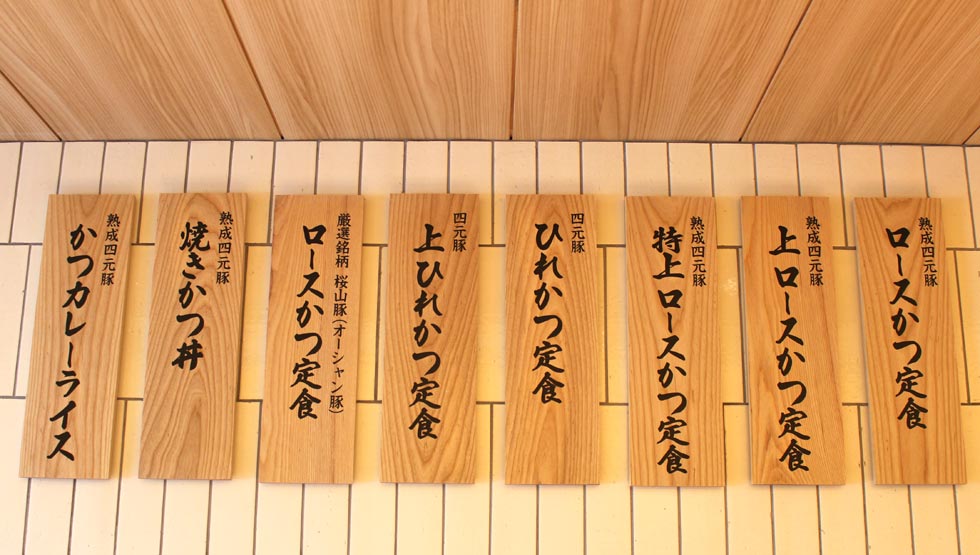 熟成四元豚
ロースかつ定食
熟成四元豚
上ロースかつ定食
熟成四元豚
特上ロースかつ定食
四元豚
ひれかつ定食
四元豚
上ひれかつ定食
厳選銘柄 桜山豚(オーシャン豚)
ロースかつ定食
熟成四元豚
焼きかつ丼
熟成四元豚
かつカレーライス